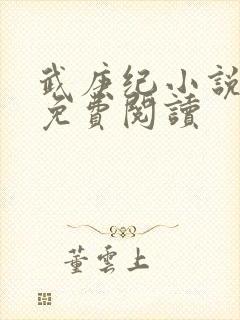 武庚纪小說
免費閱讀
董雲上